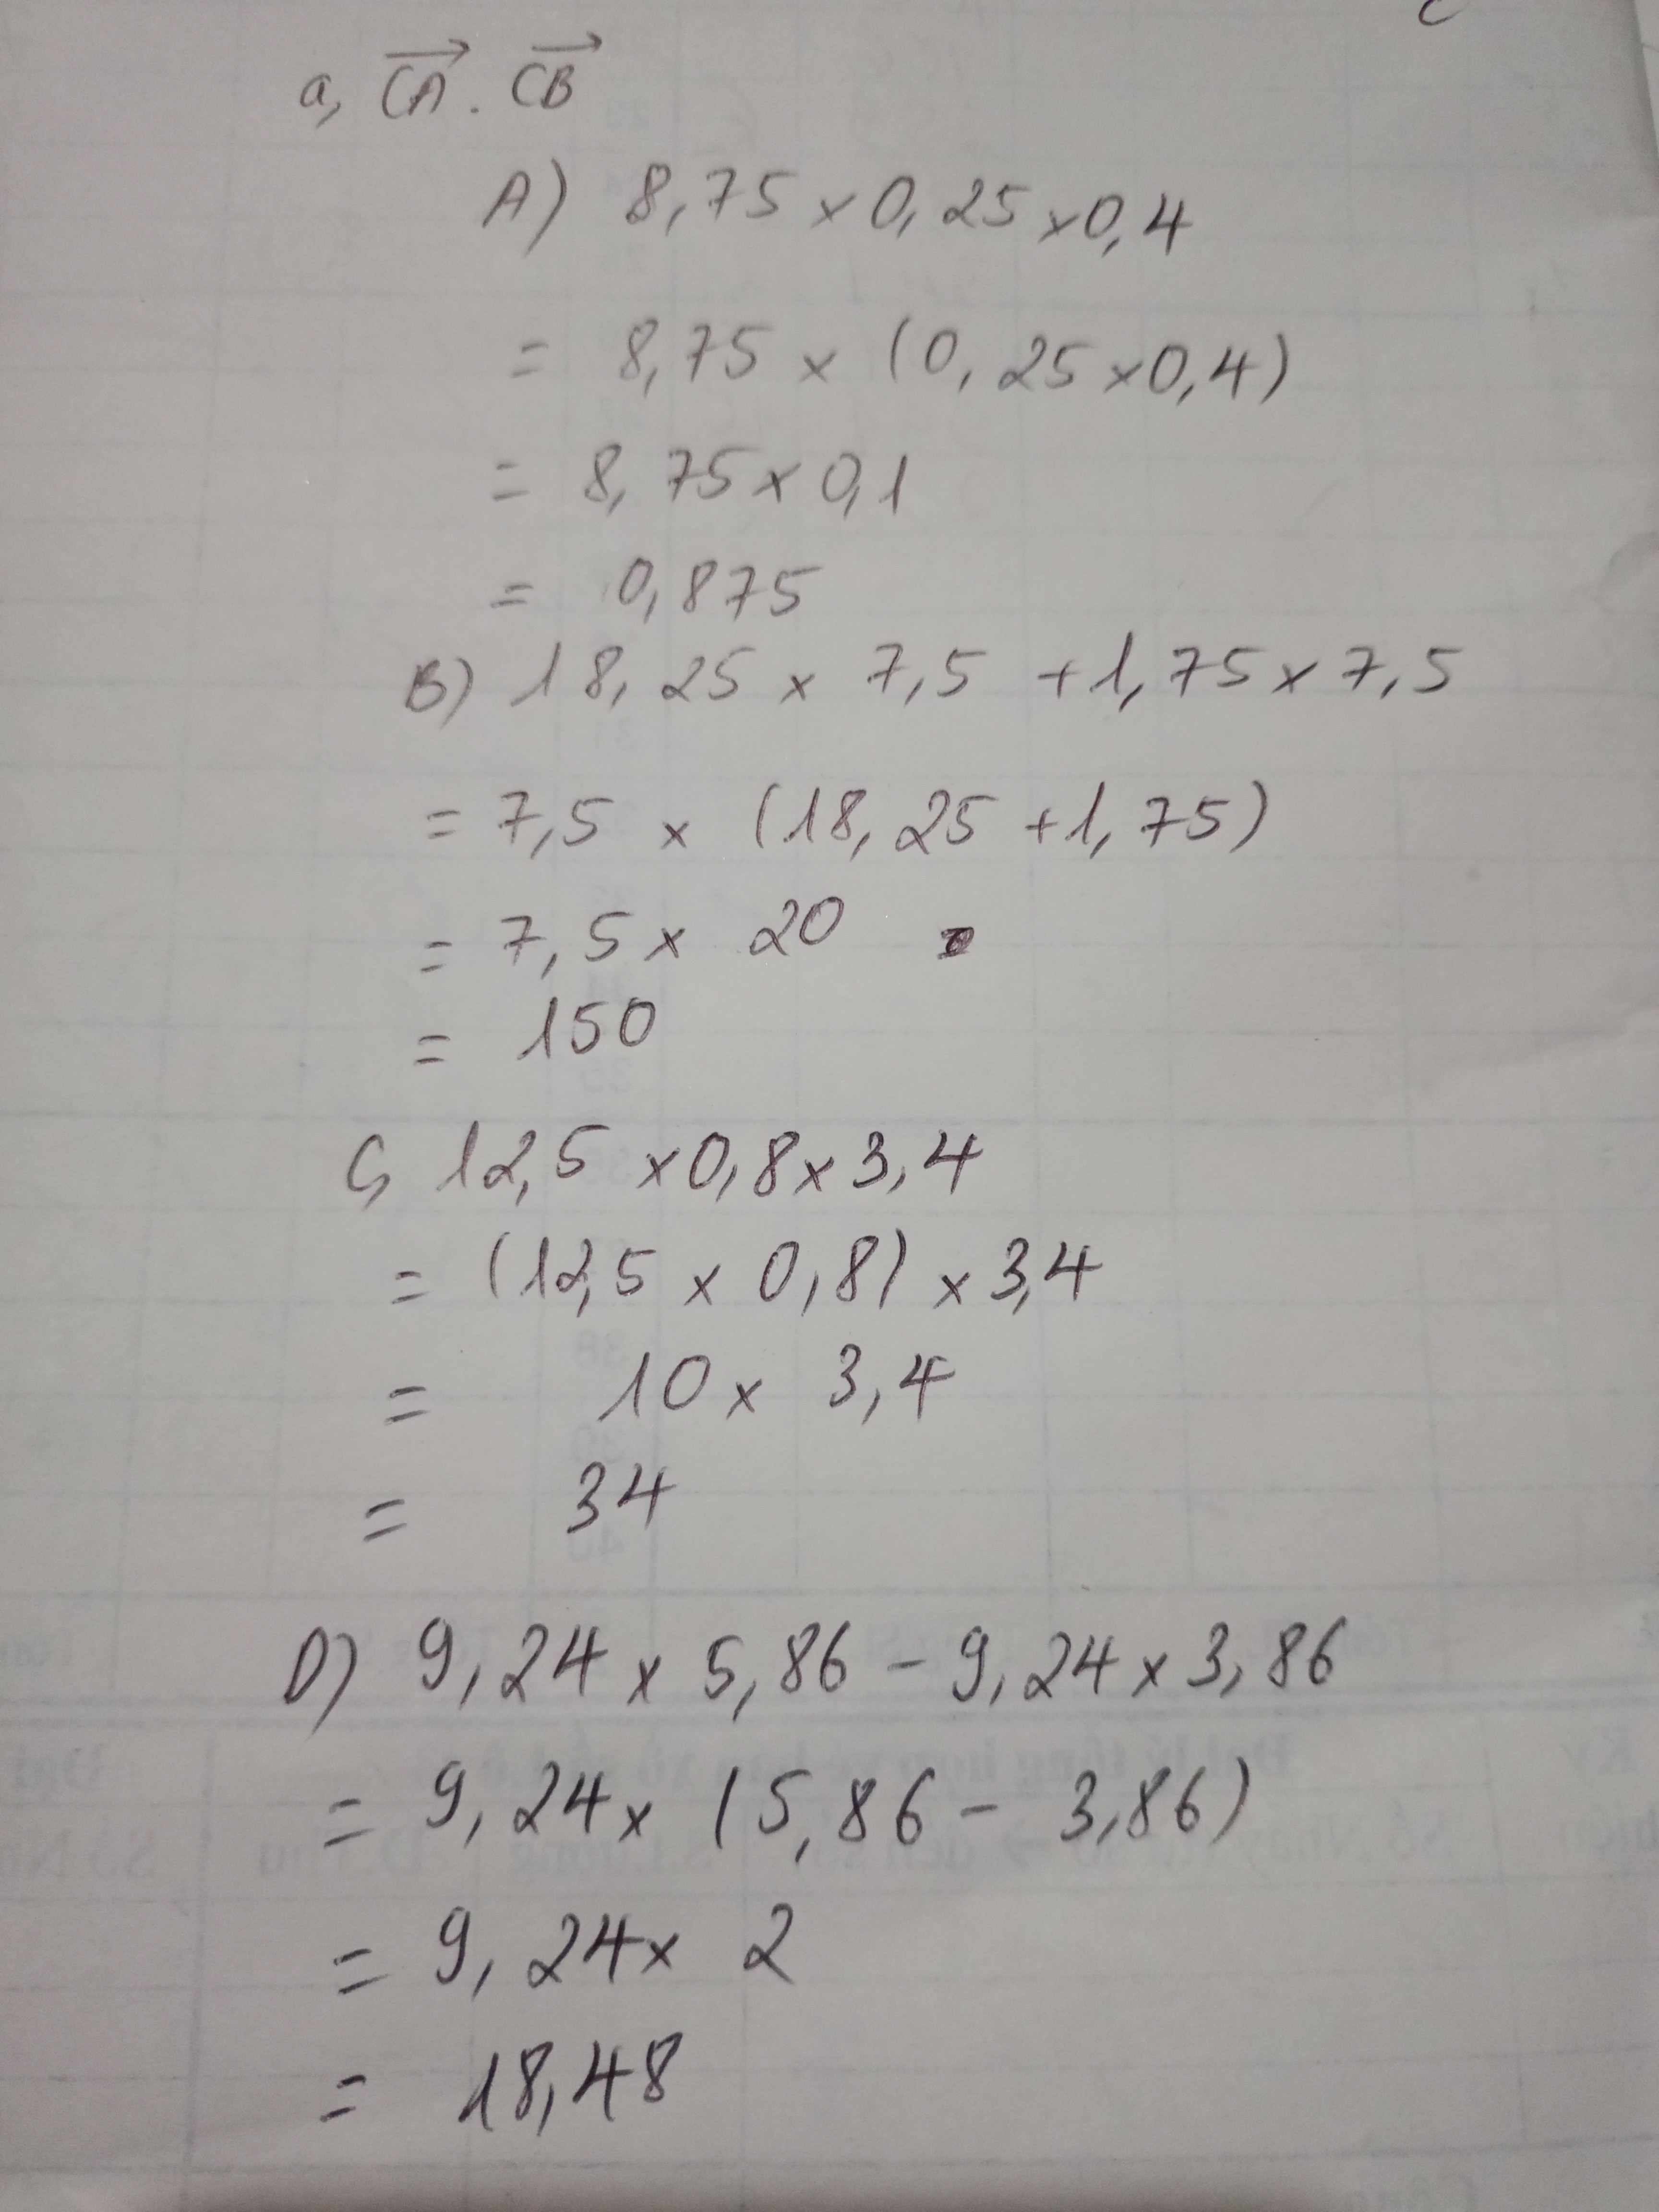 a, CA . CB
A) 8,75 x 0,25 x 0,4
= 8,75 x (0,25 x 0,4)
= 8,75 x 0,1
= 0,875
B) 18,25 x 7,5 + 1,75 x 7,5
= 7,5 x (18,25 + 1,75)
= 7,5 x 20
= 150
C, 12,5 x 0,8 x 3,4
= (12,5 x 0,8) x 3,4
= 10 x 3,4
= 34
D) 9,24 x 5,86 - 9,24 x 3,86
= 9,24 x (5,86 - 3,86)
= 9,24 x 2
= 18,48